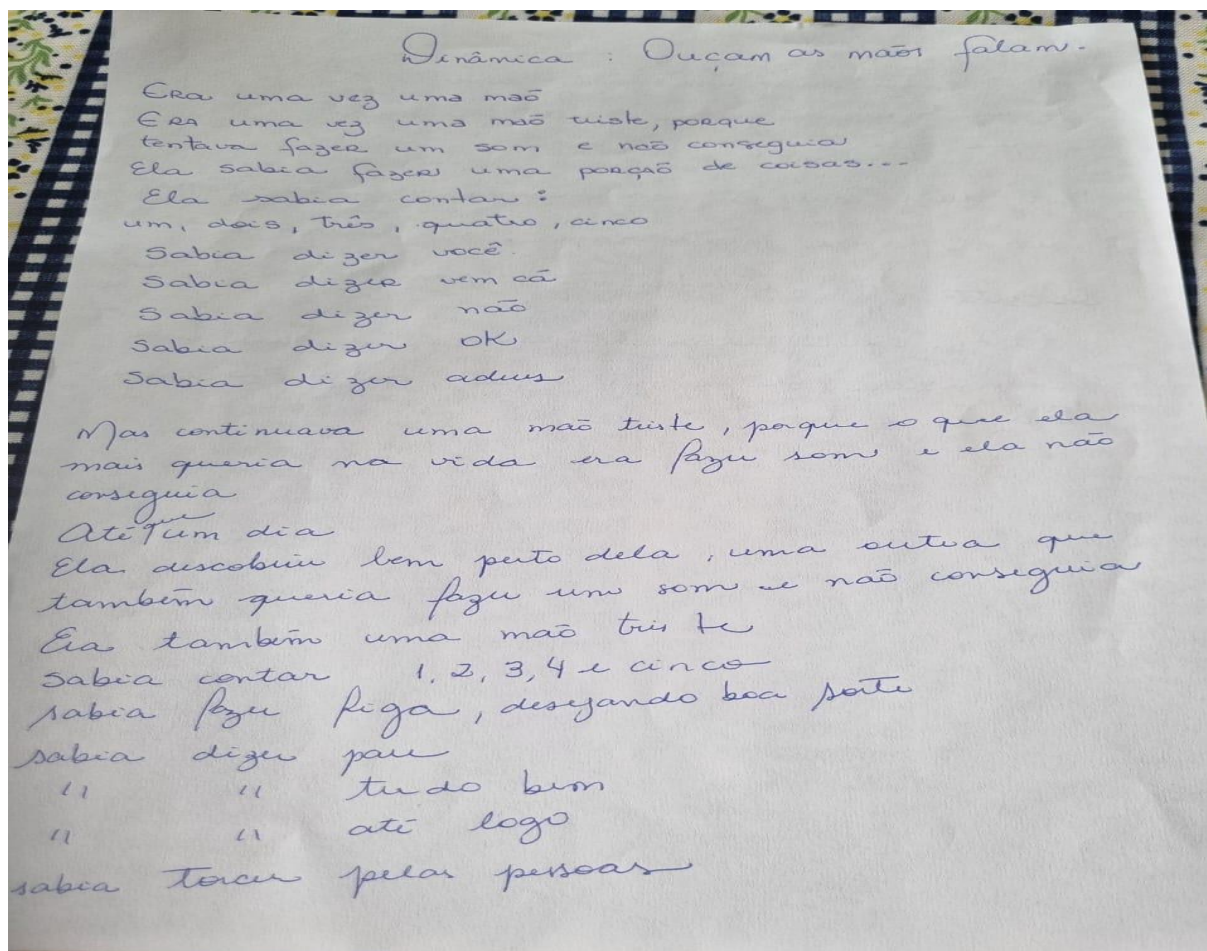 Dinâmica : Ouçam as mãos falam.
Era uma vez uma mão
Era uma vez uma mão triste, porque
tentava fazer um som e não conseguia
Ela sabia fazer uma porção de coisas...
Ela sabia contar :
um, dois, três, quatro, cinco
Sabia dizer você
Sabia dizer vem cá
Sabia dizer não
Sabia dizer ok
Sabia dizer adeus
Mas continuava uma mão triste, porque o que ela
mais queria na vida era fazer som e ela não
conseguia
Até que um dia
Ela descobriu bem perto dela, uma outra que
também queria fazer um som e não conseguia
Era também uma mão triste
Sabia contar 1, 2, 3, 4 e cinco
sabia fazer figa, desejando boa sorte
sabia dizer pare
" " tudo bem
" " até logo
sabia torcer pelas pessoas